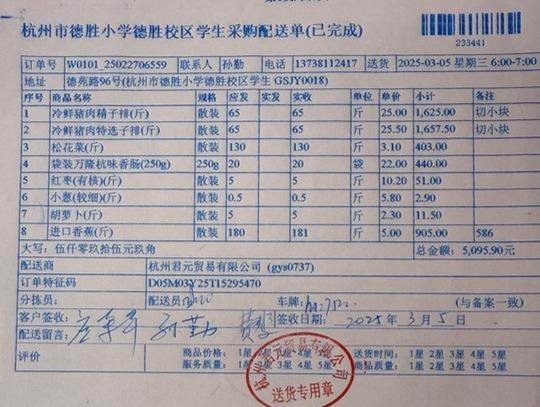 杭州市德胜小学德胜校区学生采购配送单(已完成)
233441
订单号 W0101_25022706559 联系人 孙勤 电话 13738112417 送货 2025-03-05 星期三 6:00-7:00
地址 德苑路96号(杭州市德胜小学德胜校区学生 GSJY0018)
序号 商品名称 规格 应发 实发 实收 单位 单价 小计 备注
1 冷鲜猪肉精子排(斤) 散装 65 65 斤 25.00 1,625.00 切小块
2 冷鲜猪肉特选子排(斤) 散装 65 65 斤 25.50 1,657.50 切小块
3 松花菜(斤) 散装 130 130 斤 3.10 403.00
4 袋装万隆杭味香肠(250g) 250g 20 20 袋 22.00 440.00
5 红枣(有核)(斤) 散装 5 5 斤 10.20 51.00
6 小葱(较细)(斤) 散装 0.5 0.5 斤 5.80 2.90
7 胡萝卜(斤) 散装 5 5 斤 2.30 11.50
8 进口香蕉(斤) 散装 180 181 斤 5.00 905.00 586
大写: 伍仟零玖拾伍元玖角 总金额: 5,095.90元
配送商 杭州君元贸易有限公司 (gys0737)
订单特征码 D05M03Y25T15295470
分拣员: 配送员: 车牌: (与备案一致)
客户签收: 孙勤 签收日期: 2025年3月5日
配送留言:
评价 商品价格: 1星 2星 3星 4星 5星 送货时间: 1星 2星 3星 4星 5星
服务质量: 1星 2星 3星 4星 5星 商品质量: 1星 2星 3星 4星 5星
杭州君元贸易有限公司
送货专用章